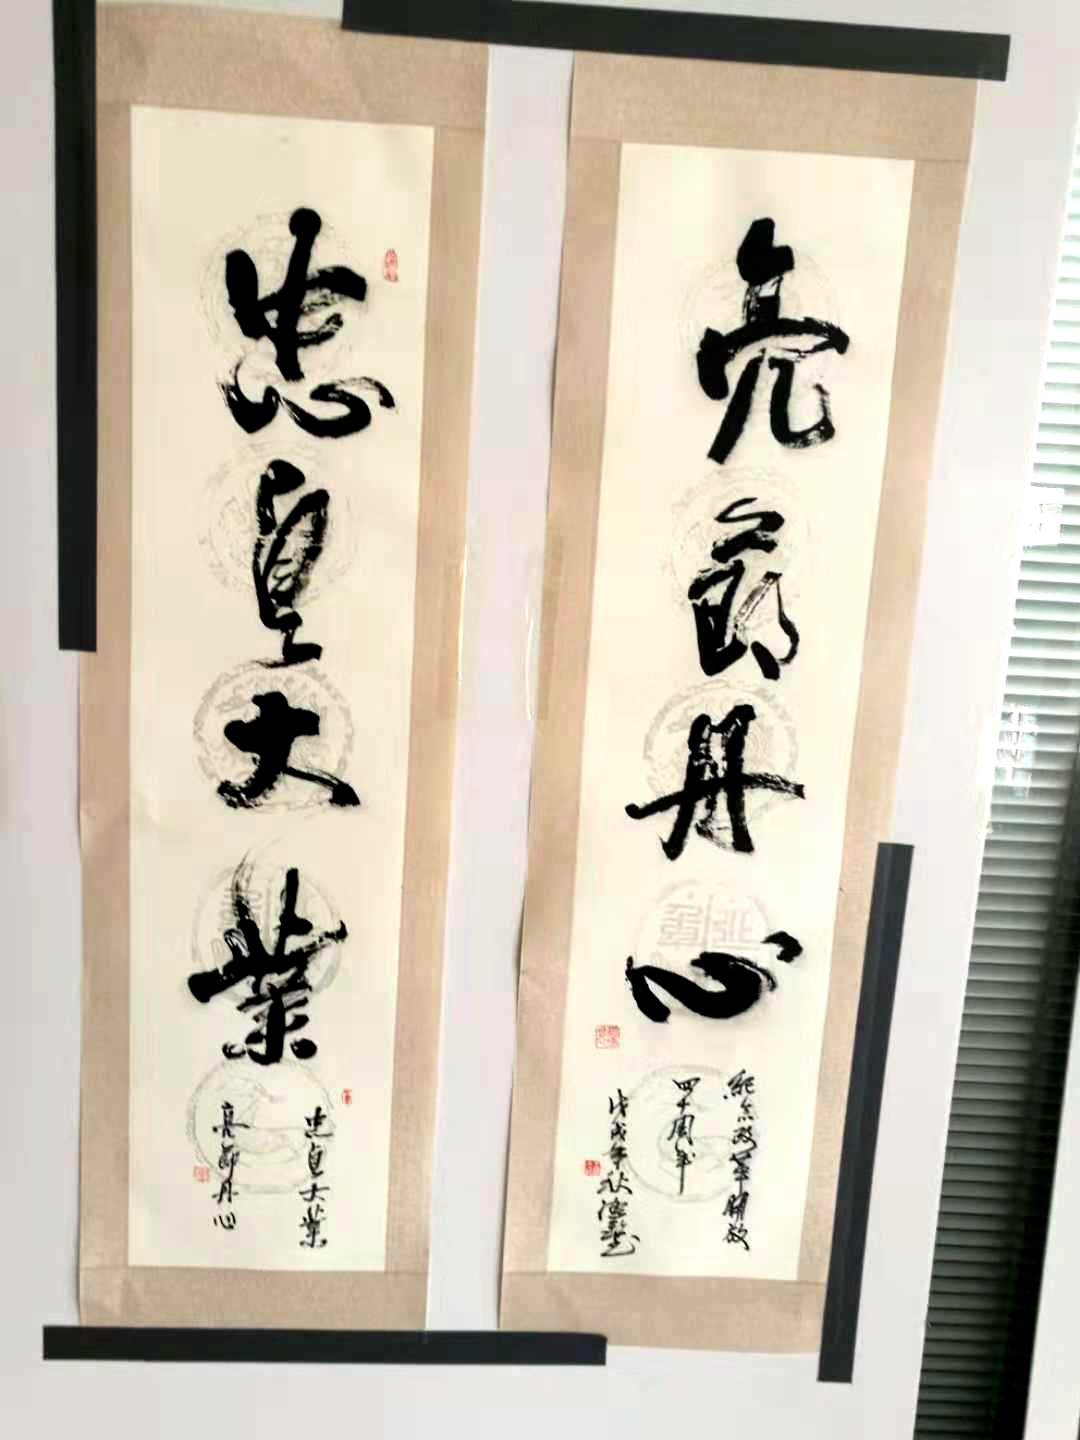 忠贞大业
忠贞大业
亮节丹心
亮节丹心
纪念改革开放
四十周年
戊戌年秋